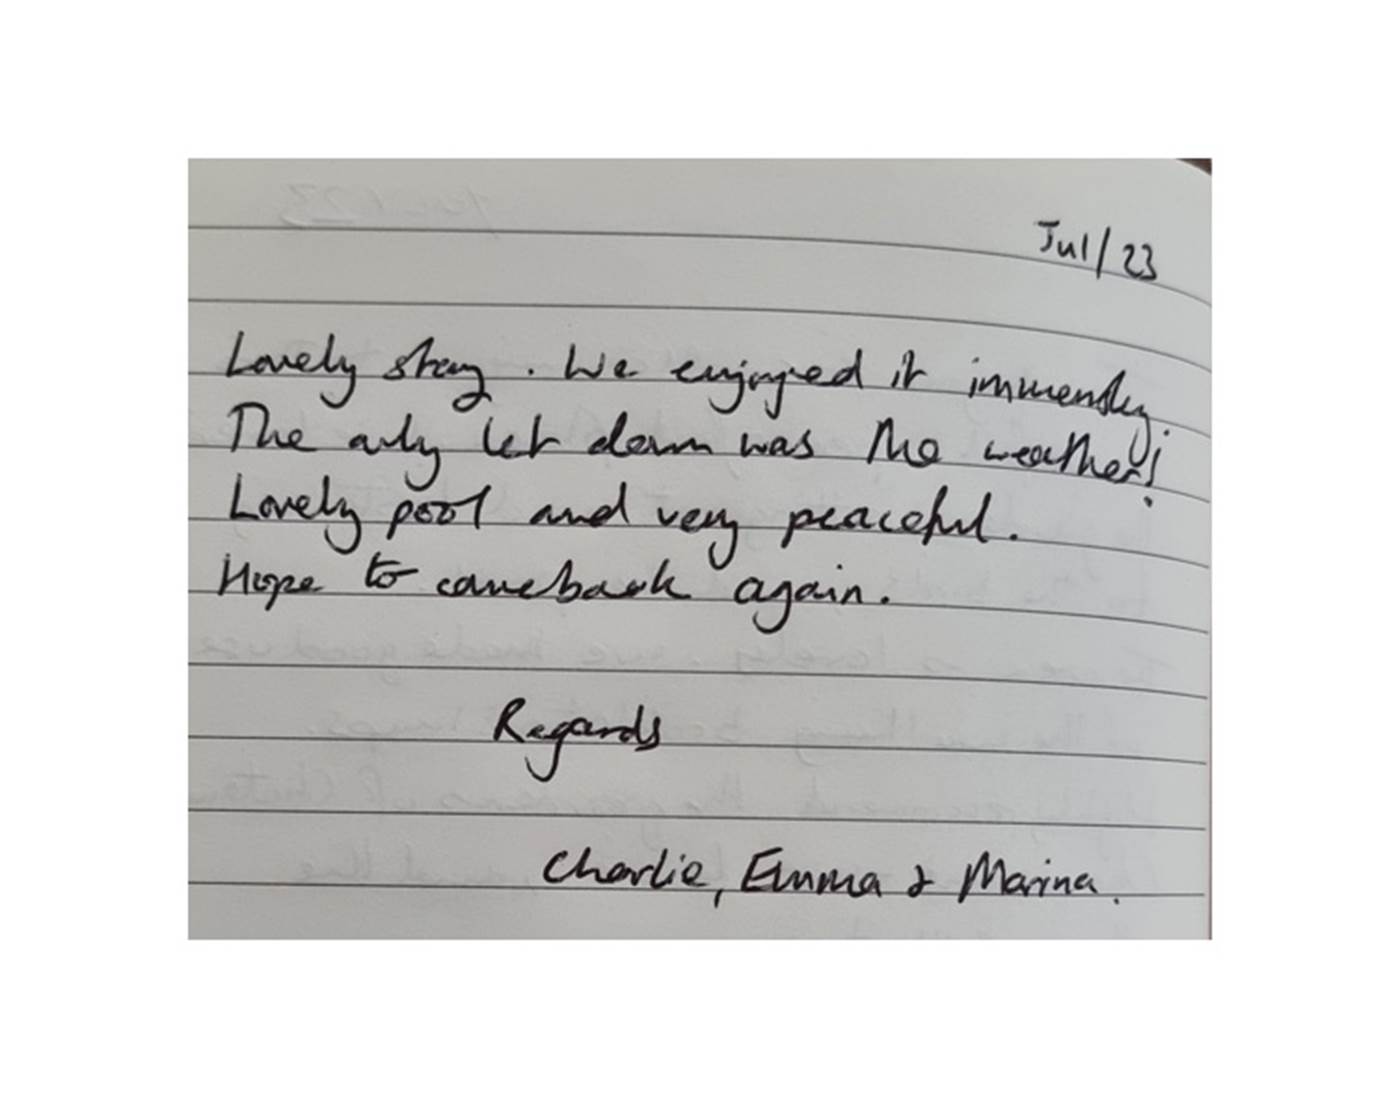 Jul/23
Lovely stay. We enjoyed it immensely.
The only let down was the weather!
Lovely pool and very peaceful.
Hope to come back again.
Regards
Charlie, Emma & Marina.